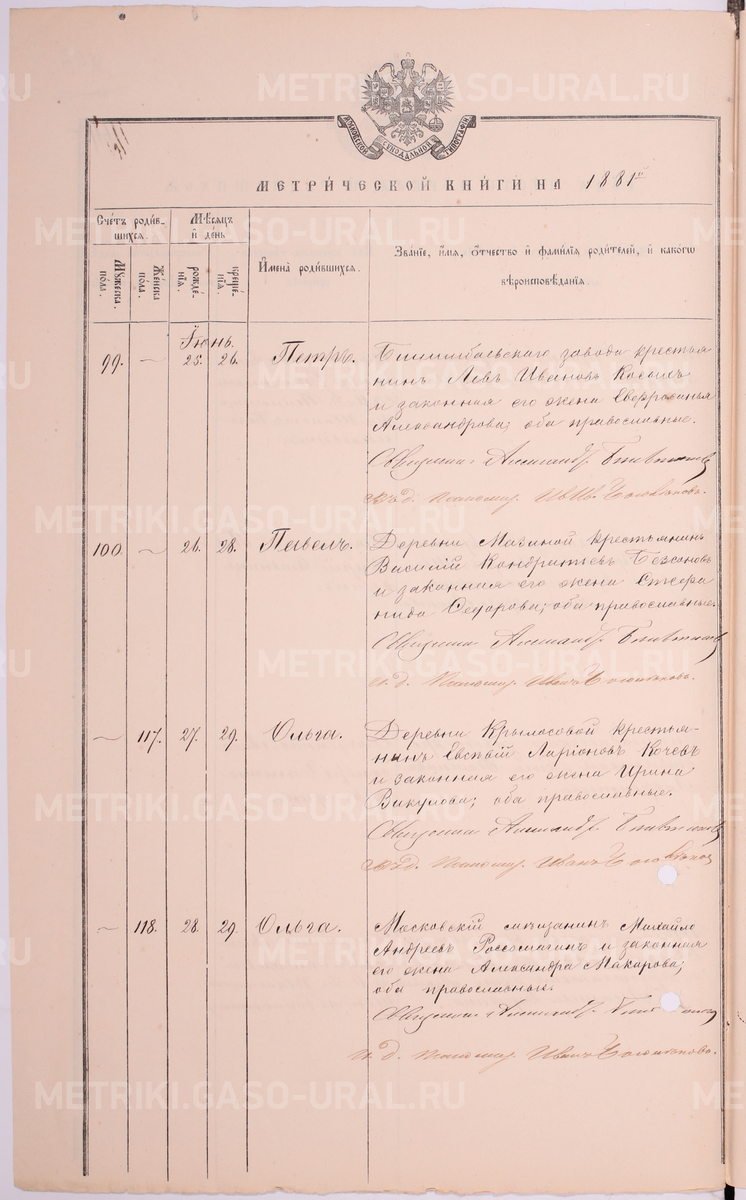 METRIKI.GASO-URAL.RU
МОСКОВСКОЙ СѴНОДАЛЬНОЙ ТИПОГРАФІИ
МЕТРИЧЕСКОЙ КНИГИ НА 1881й
Счетъ родившихся.
Мѣсяцъ и день
Мужеска пола.
Женска пола.
рожденія.
крещенія.
Имена родившихся.
Званіе, имя, отчество и фамилія родителей, и какогѡ
вѣроисповѣданія.
Іюнь.
99. — 25. 26. Петръ. Билимбаевскаго завода крестья
нинъ Левъ Ивановъ
и законная его жена Евфросинья
Александрова; оба православные.
Священникъ Александръ
И. Д. Псаломщ. Ив. Ив.
100. — 26. 28. Павелъ. Деревни Мазиной крестьянинъ
Василій Кондратьевъ Безсоновъ
и законная его жена
нида Федорова; оба православные.
Священникъ Александръ
И. Д. Псаломщ. Иванъ
— 117. 27. 29. Ольга. Деревни Крылосовой крестья-
нинъ Евсѣвій Ларіоновъ Кочевъ
и законная его жена Ирина
Викулова; оба православные.
Священникъ Александръ
И. Д. Псаломщ. Иванъ
— 118. 28. 29. Ольга. Московскій мѣщанинъ Михайло
Андреевъ и законная
его жена Александра Макарова;
оба православные.
Священникъ Александръ
И. Д. Псаломщ. Иванъ